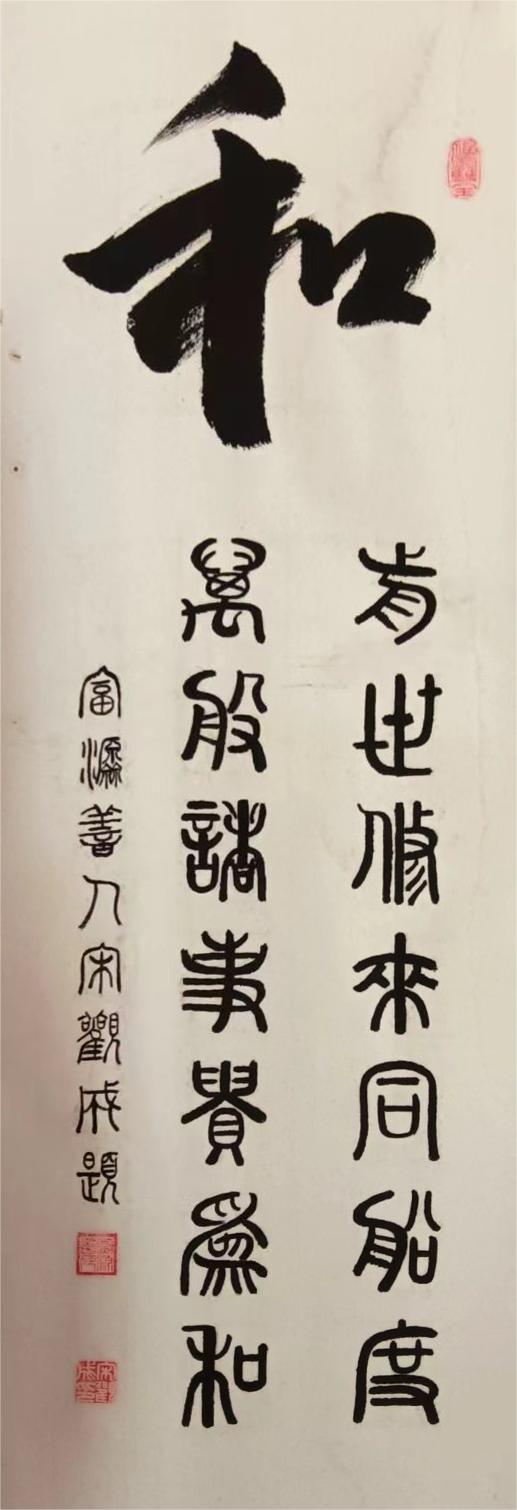 和
前世修來同船度
萬般諸事貴爲和
富源善人宋觀成題